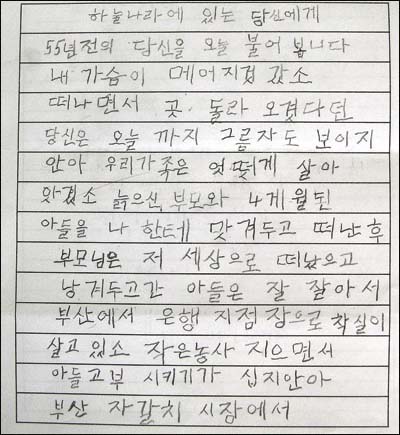 하늘나라에 있는 당신에게
55년전의 당신을 오늘 불어 봅니다
내 가슴이 메어지겁 갔소
떠나면서 곳 돌라 오겠다던
당신은 오늘 까지 그름자도 보이지
안아 우리가족은 엇떻게 살아
왔겠소 늙으신 부모와 4게월된
아들을 나 한테 맛겨두고 떠난후
부모님은 저 세상으로 떠났으고
낭겨두고간 아들은 잘 잘아서
부산에서 은행 지점장으로 착실이
살고 있소 작은농사 지으면서
아들고부 시키기가 십지안아
부산 자갈치 시장에서